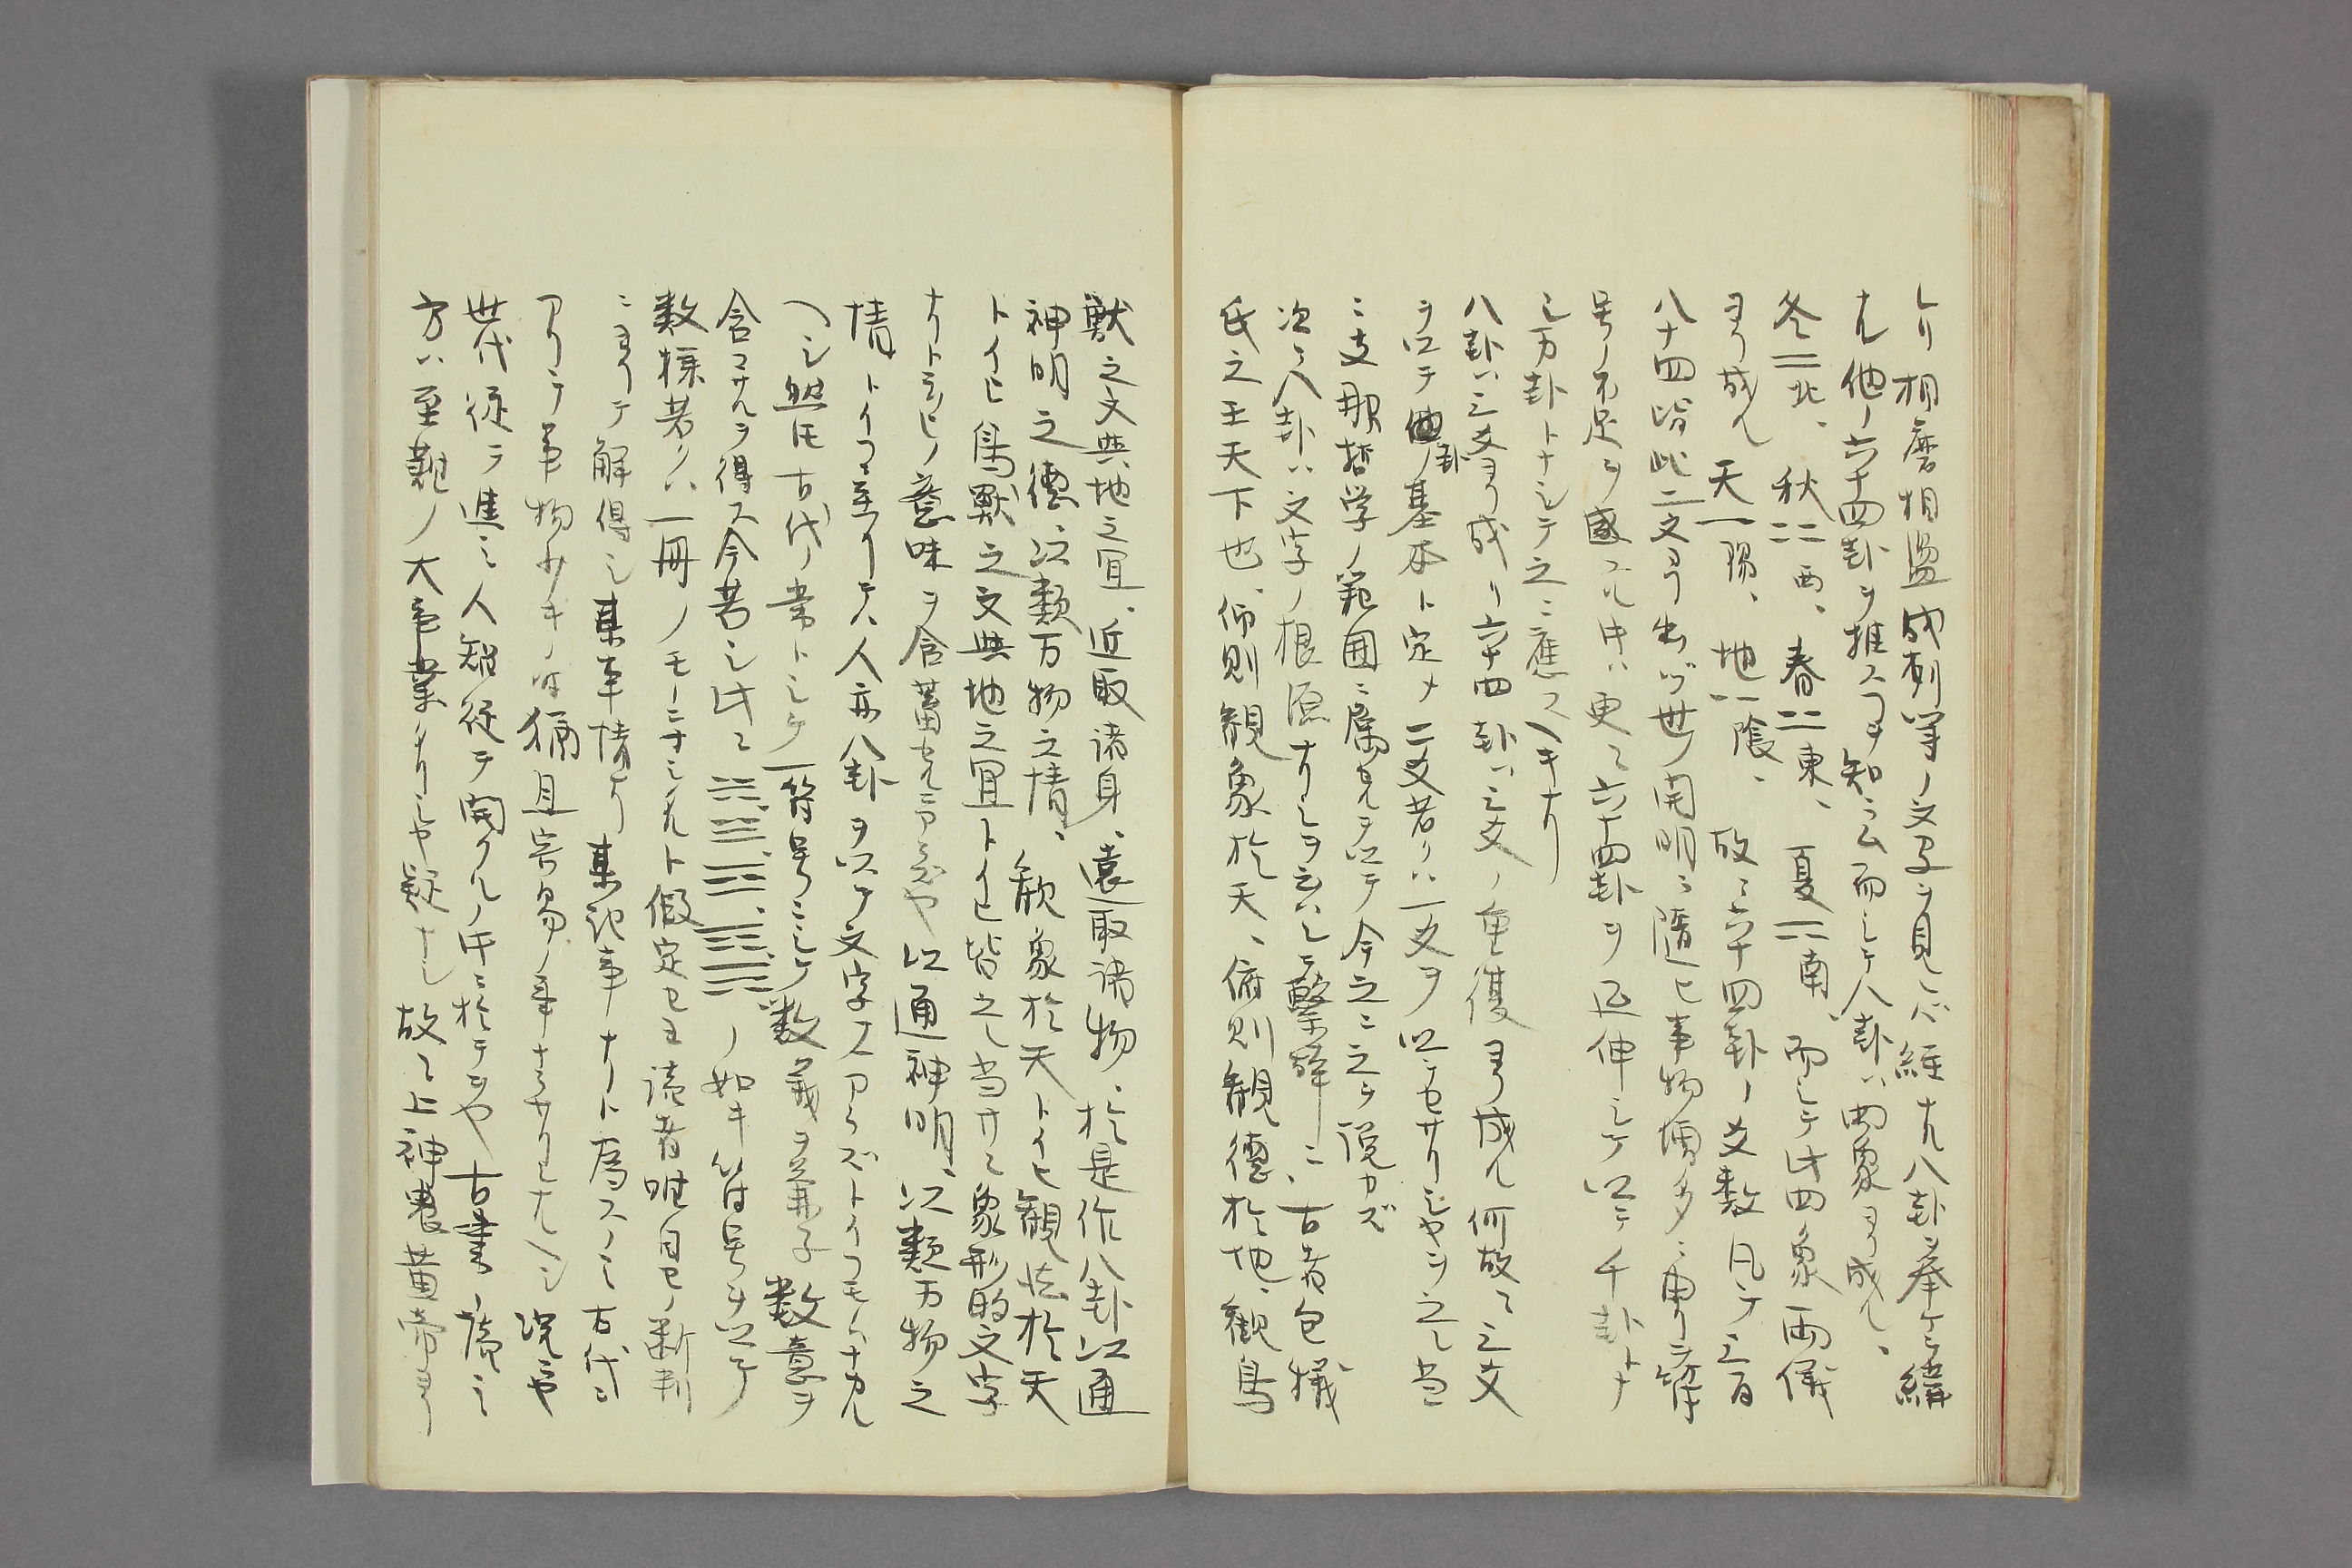 レリ相磨相盪成列等ノ文字ヲ見レバ経ナル八卦ヲ挙ケテ緯
ナル他ノ六十四卦ヲ推スヿヲ知ラム而シテ八卦ハ四象ヨリ成ル、
冬⚌北、秋⚏西、春⚍東、夏⚎南、而シテ此四象両儀
ヨリ成ル 天⚊陽、地⚋陰、故ニ六十四卦ノ爻数凡テ三百
八十四皆此二爻ヨリ出ヅ世ノ開明ニ随ヒ事物増多ニ
号ノ不足ヲ感スル時ハ更ニ六十四卦ヲ延伸シテ以テ千卦トナ
シ万卦トナシテ之ニ應スヘキナリ
八卦ハ三爻ヨリ成リ六十四卦ハ三爻ノ重復ヨリ成ル何故ニ三爻
ヲ以テ卦ノ基本ト定メ二爻若クハ一爻ヲ以テセサリシヤヲ之レ当
ニ支那哲学ノ範囲ニ属セルヲ以テ今之ニ之ヲ説カズ
次ニ八卦ハ文字ノ根源ナリシヲ云ハレテ繋辞ニ、古者包犠
氏之王天下也、仰則観象於天、俯則観徳於地、観鳥
獣之文與地之宜、近取諸身、遠取諸物、於是作八卦以通
神明之徳、以類万物之情、観象於天トイヒ観法於天
トイヒ鳥獣之文與地之宜トイヒ皆之レ当サニ象形的文字
ナリト云ヒノ意味ヲ含蓄セルニアラズヤ以通神明、以類万物之
情トイフニ至リテハ人亦八卦ヲ以テ文字スアラズトイフモノナカル
ヘシ然トモ古代ノ常トシテ一符号ニシテ数義ヲ兼子数意ヲ
含マサルヲ得ス今若シ此ニ☵、☳、☴、☷、☶ノ如キ符号ヲ以テ
数様若クハ一冊ノモノニナシタルト假定セヨ読者唯自己ノ断判
ニヨリテ解得シ某事情ナリ某記事ナリト為スノミ古代ニ
アリテ事物少キノ時猶且容易ノ事ナラサリシナルヘシ況ンヤ
世代従テ進ミ人智従テ開クルノ時ニ於テヲヤ古書ノ読ミ
方ハ至難ノ大事業ナリシヤ疑ナシ故ニ上神農黄帝ヨリ